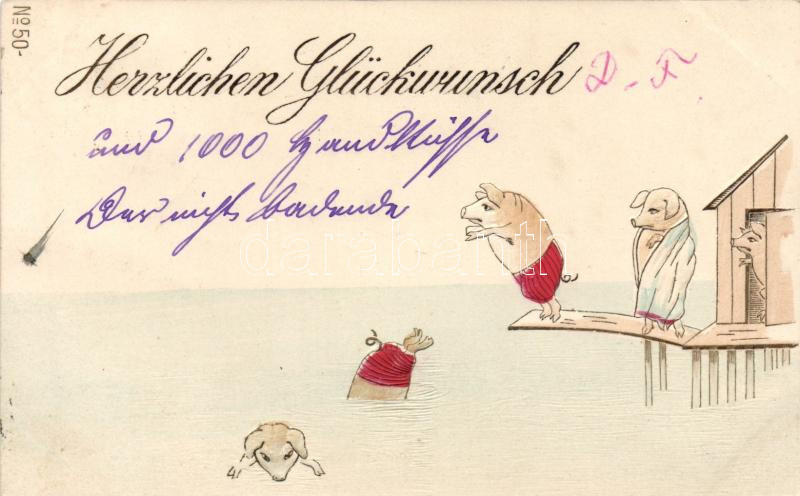 No 50-
Herzlichen Glückwunsch
und 1000 Handküsse
Der nichts badende
darabanth